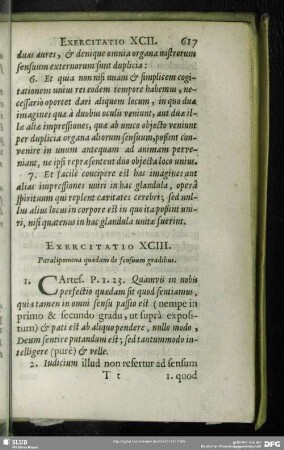 EXERCITATIO XCII. 617
duas aures, & denique omnia organa nostrorum
sensuum externorum sunt duplicia:
6. Et quia non nisi unam & simplicem cogi-
tationem unius rei eodem tempore habemus, ne-
cessariò oportet dari aliquem locum, in quo duæ
imagines quæ à duobus oculis veniunt, aut duæ il-
læ aliæ impressiones, quæ ab unico objecto veniunt
per duplicia organa aliorum sensuum, possint con-
venire in unum antequam ad animam perve-
niant, ne ipsi repræsentent duo objecta loco unius.
7. Et facilè concipere est has imagines aut
alias impressiones uniri in hac glandula, operâ
spirituum qui replent cavitates cerebri; sed nul-
lus alius locus in corpore est in quo ita possint uni-
ri, nisi quatenus in hac glandula unitæ fuerint.
EXERCITATIO XCIII.
Paralipomena quædam de sensuum gradibus.
1. CArtes. P. 1. 23. Quamvis in nobis
perfectio quædam sit quod sentiamus,
quia tamen in omni sensu passio est (nempe in
primo & secundo gradu, ut suprà exposi-
tum) & pati est ab aliquo pendere, nullo modo,
Deum sentire putandum est; sed tantummodo in-
telligere (purè) & velle.
2. Iudicium illud non refertur ad sensum
T t 1. quod
SLUB
Wir führen Wissen.